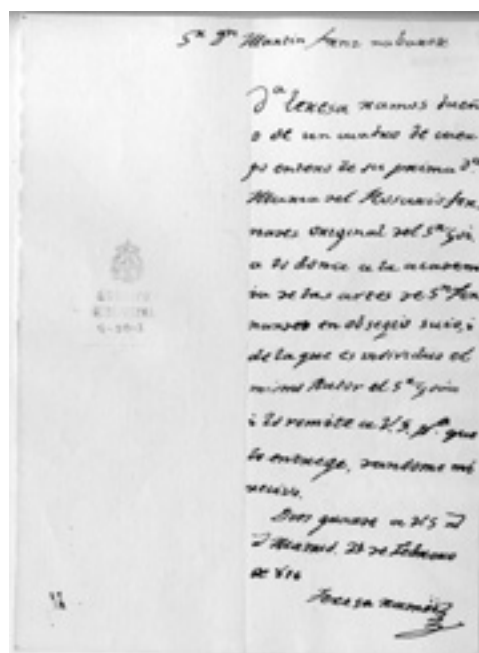 Sr Dn Martin fernz nabarete
Da teresa ramos dueñ
a de un cuadro de cuer
po entero de su prima Da
Maria del Rosario fer
nandes original del Sr Goi
a lo dona a la academ
ia de las artes de Sn fer
nando en obsegio suio, i
de la que es individuo el
mismo Autor el Sr Goia
i lo remite a V.S. pa que
lo entrege, dandome mi
recivo.
Dios guarde a VS
Madrid. 23 de Febrero
de 816
Teresa Ramos